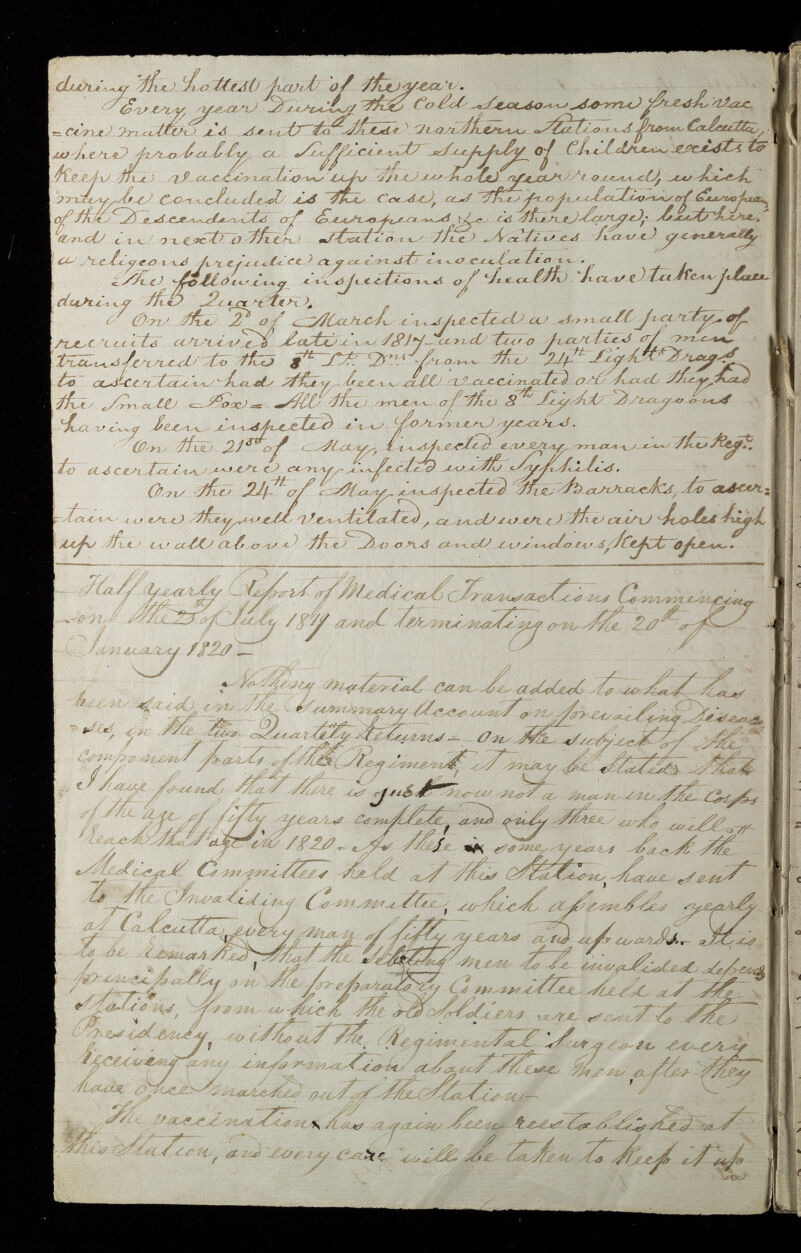 during the hottest part of the year.
Every year During the Cold season some fresh vac
=cine matter is sent to these northern Stations from Calcutta,
where probably a Sufficient supply of Children exists to
keep the vaccination up the whole year round, which
may be concluded is the case, as the population of Europeans
of the Descendents of Europeans &c is there large; but here,
and in next other station the Natives have generally
a religeons prejudice against inoculation.
The following inspections of health have taken place
during the Quarter.
On the 2d of March inspected a small party of
recruits arrived late in 1817 and two parties of men
transferred to the 8th Lt. Dns from the 24th Light Drags.
to ascertain had they been all vaccinated or had they had
the Small Pox = All the men of the 8th Light Dragoons
having been inspected in former years.
On the 21st of May, inspected every man in the Regt.
to ascertain were any infected with Syphilis.
On the 24th of May inspected the Barracks, to ascer=
=tain were they well ventilated, and were the air holes high
up the wall above the Doors and windows, kept open.
Half yearly Report of Medical Transactions Commencing
on the of July 1819 and terminating on the 20th of
January 1820 -
Nothing material can be added to what has
been said in the Summary Account on prevailing Disea=
=ses, in the two Quarterly Returns - On the subject of the
component parts of the Regiment, it may be Stated that
I have found that there is just now not a man in the Corps
of the age of fifty years complete, and only three who will
reach that age in 1820 - As these some years back the
Medical Committees held at this Station, have sent
to the Invaliding Committee, which assembles yearly
at Calcutta, every man of fifty years and upwards. It is
to be remarked, that the men to be invalided depends
principally on the preparatory Committee held at the
stations, from which the old Soldiers are sent to the
Presidency, without the Regimental Surgeon every
receiveng any information about these men, after they
have once marched out of the Station -
The vaccination has again been reestablished at
this Station, and every care will be taken to keep it up